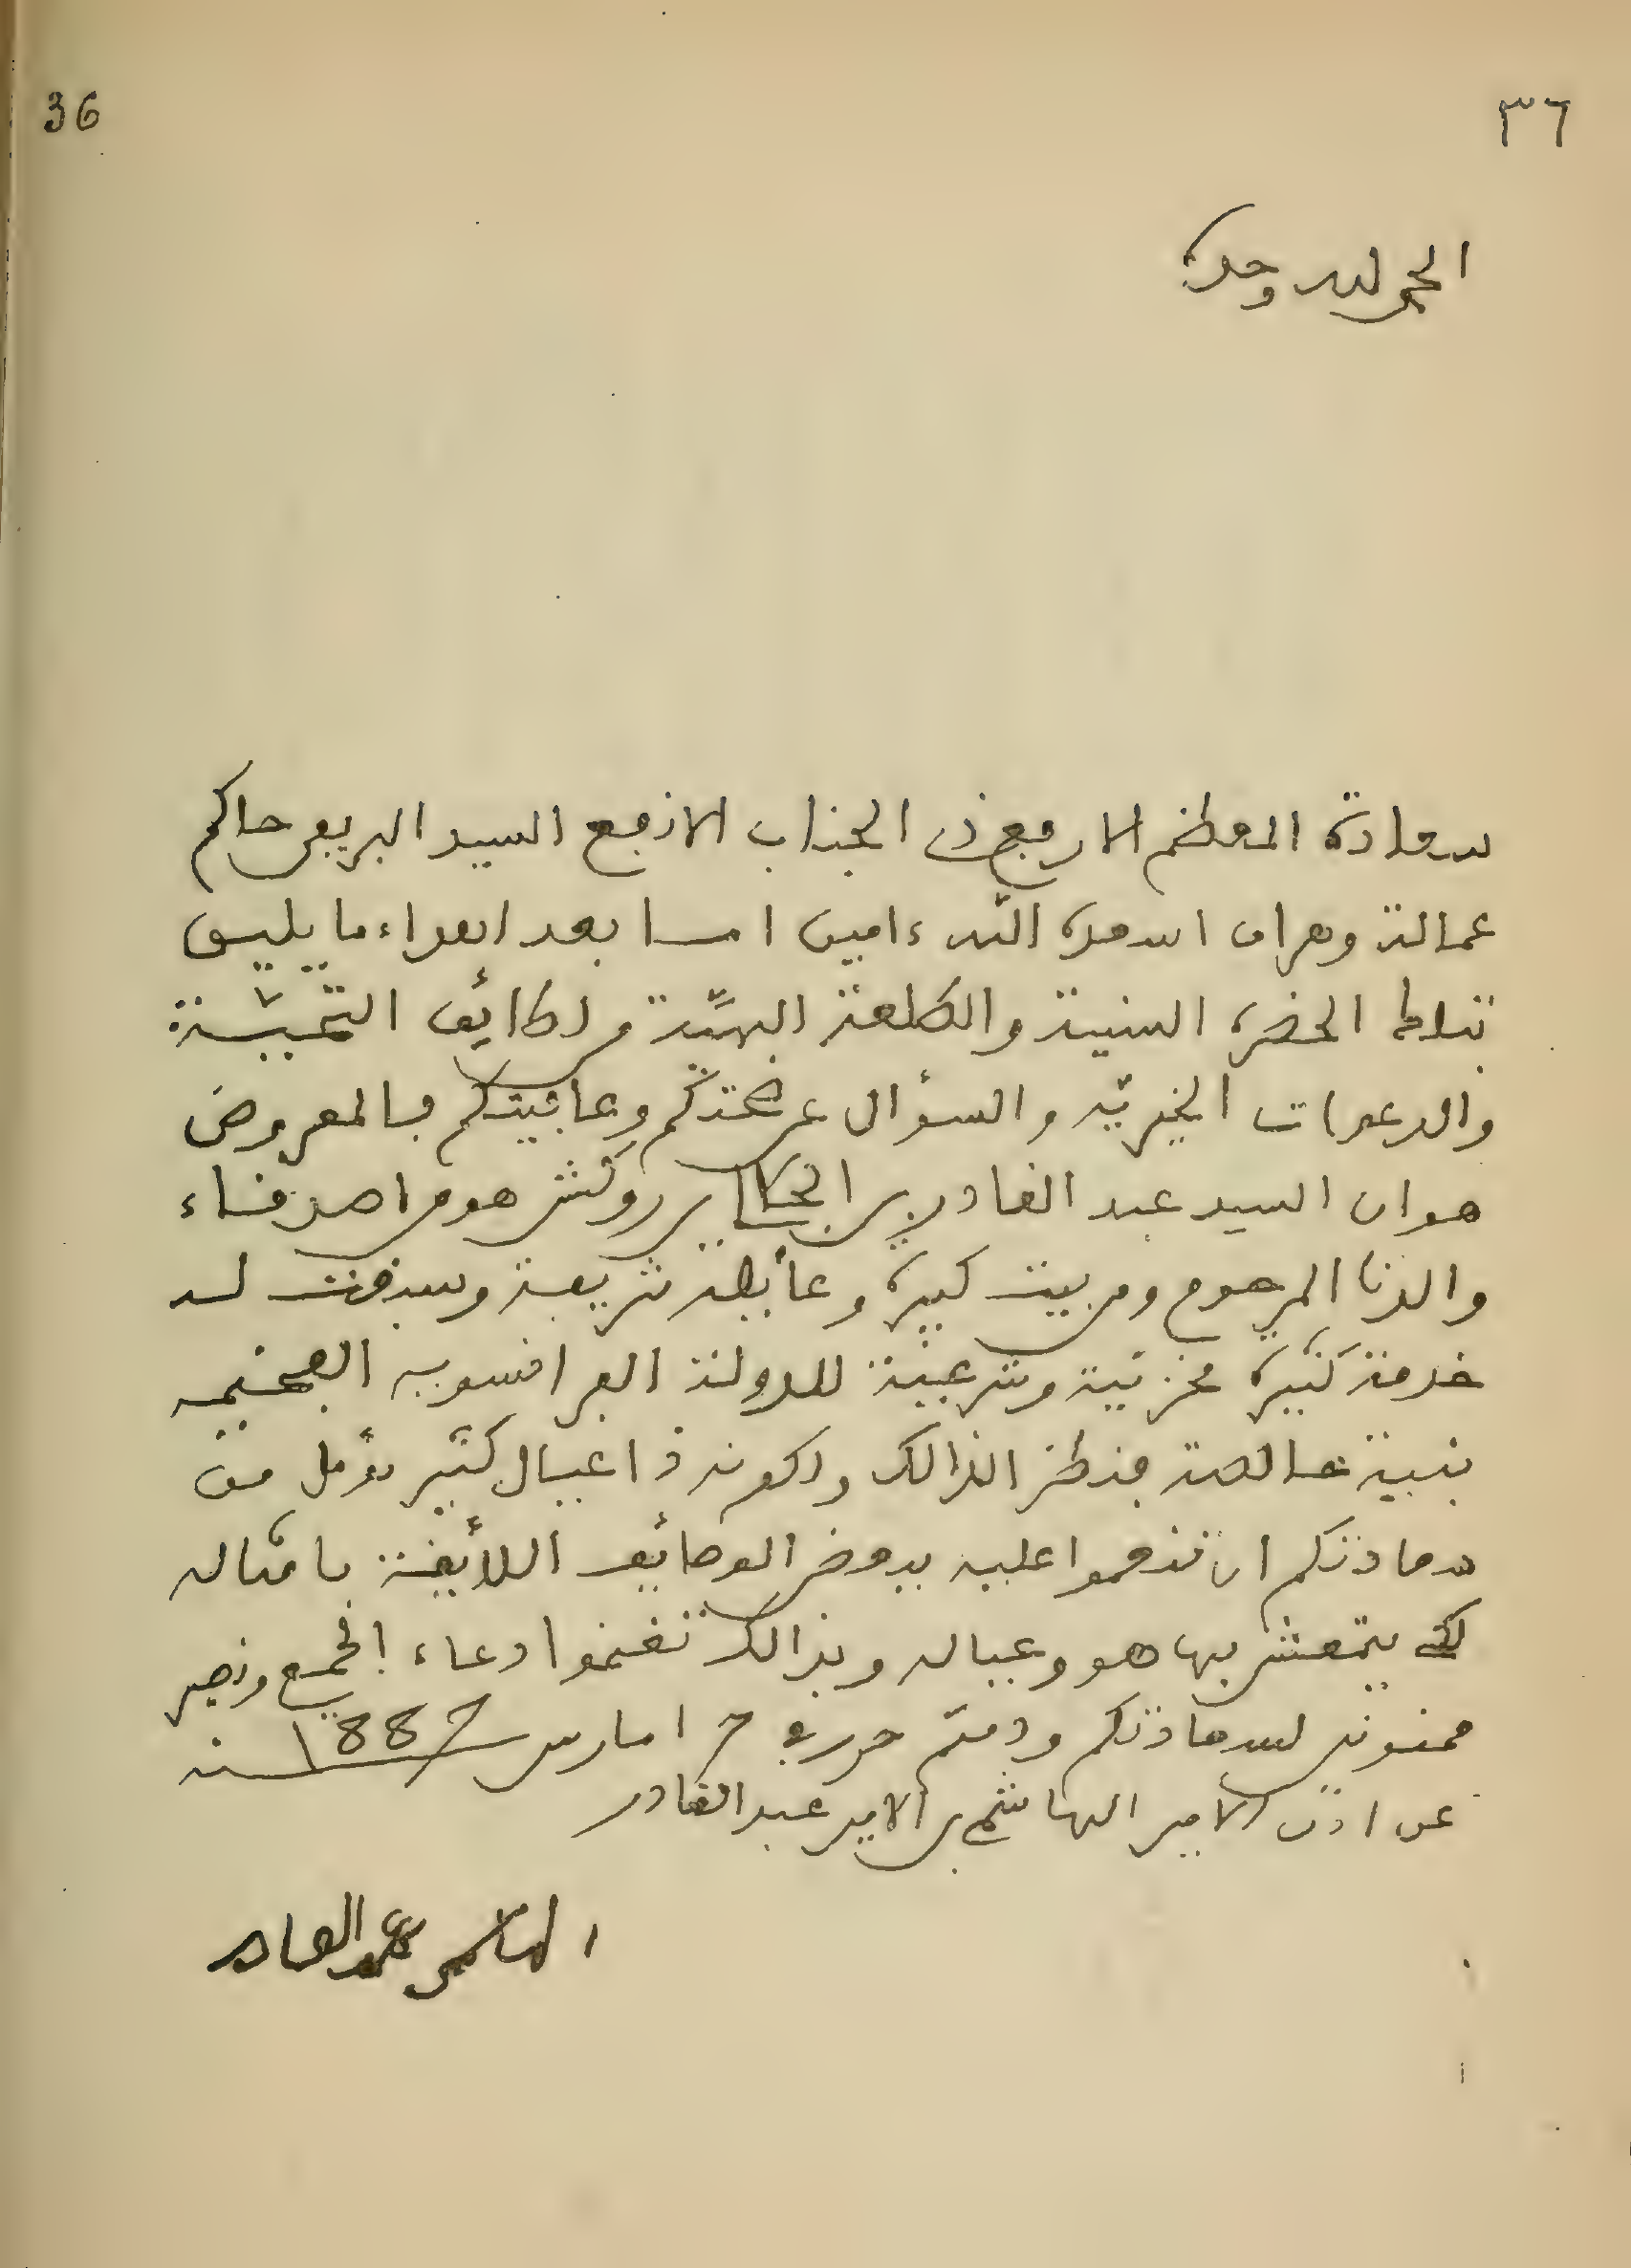 36
٣٦
الحمد لله وحده
سعادة المعظم الارفع ذي الجناب الانفع السيد البريفي حاكم
عمالة وهران اسعده الله ءامين اما بعد اهداء ما يليق
ببساط الحضرة السنية والطلعة البهيّة من لطائف التحيّة
والدعوات الخيريّة والسؤال عن صحتكم وعافيتكم فالمعروض
هو ان السيد عبد القادر بن روكش هو من اصدقاء
والدنا المرحوم ومن بيت كبيرة وعائلة شريفة وسبقت له
خدمة كثيرة مخزنية وشرعية للدولة الفرانسوية الفخيمه
بنية خالصة فنظرا لذالك ولكونه ذا عيال كثير نؤمل من
سعادتكم ان تنعموا عليه ببعض الوضائف اللائقة بامثاله
لكي يتمعش بها هو وعياله وبذالك تغنموا دعاء الجميع ونصير
ممنونين لسعادتكم ودمتم حرر في مارس سنه 188
عن اذن الامير الهاشمي بن الامير عبد القادر
الهاشمي بن عبد القادر